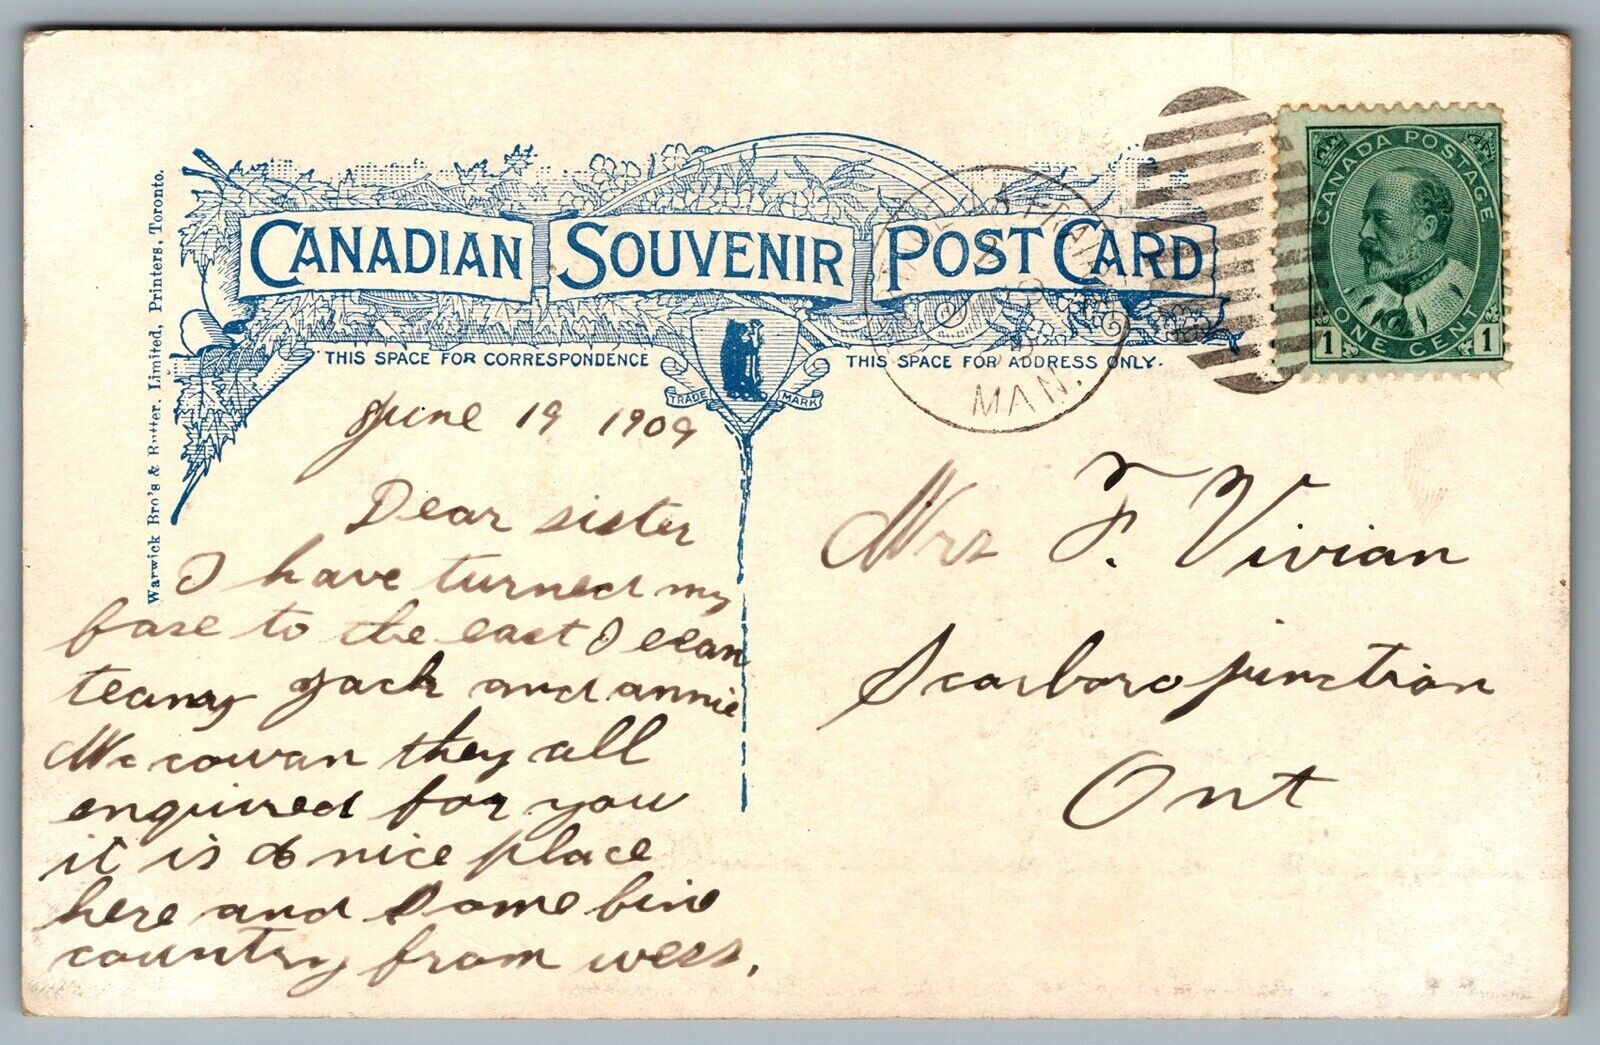 CANADIAN SOUVENIR POST CARD
THIS SPACE FOR CORRESPONDENCE
THIS SPACE FOR ADDRESS ONLY.
TRADE MARK
Warwick Bro's & Rutter, Limited, Printers, Toronto.
CANADA POSTAGE
1 ONE CENT 1
MAN.
June 19 1909
Dear sister
I have turned my
fase to the east I
Jack and annie
Mc cowan they all
enquired for you
it is a nice place
here and some fine
country from west.
Mrs F. Vivian
Scarboro junction
Ont